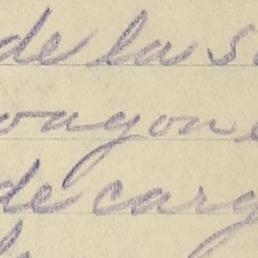 de la s
vagone
de carg